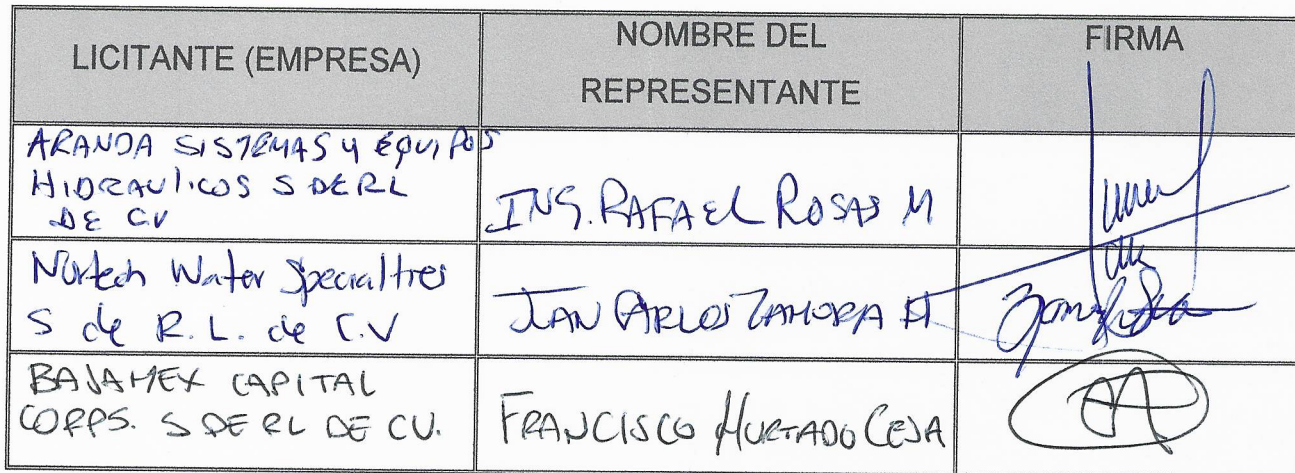 LICITANTE (EMPRESA)
NOMBRE DEL
REPRESENTANTE
FIRMA
ARANDA SISTEMAS Y EQUIPOS
HIDRAULICOS S DE RL
DE CV
ING. RAFAEL ROSAS M
Nortech Water Specialties
S de R.L. de C.V
JUAN CARLOS ZAMORA H
BAJAMEX CAPITAL
CORPS. S DE RL DE CV.
FRANCISCO HURTADO CEJA